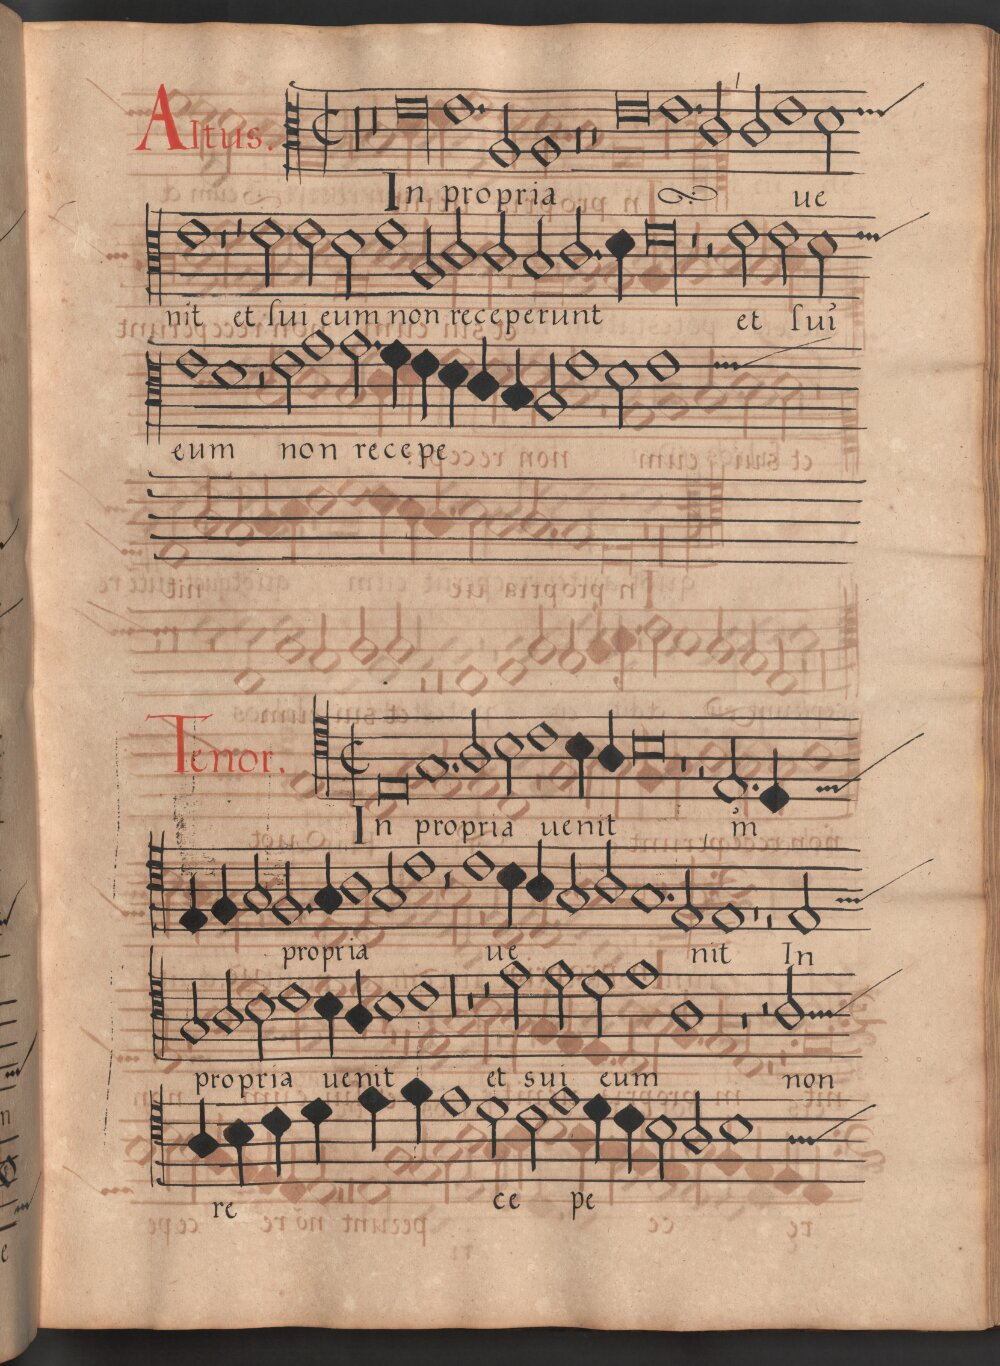 Altus.
In propria ue
nit et sui eum non receperunt et sui
eum non recepe
Tenor.
In propria uenit in
propria ue nit In
propria uenit et sui eum non
re ce pe